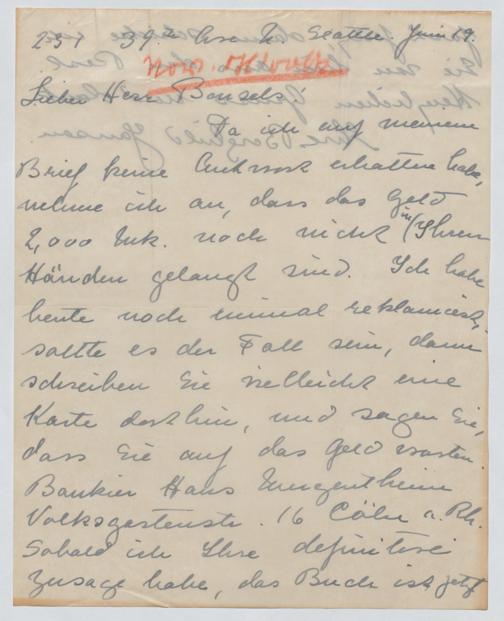 237 39th Ave N. Seattle. Juni 19.
Lieber Herr Bonsels.
Da ich auf meinem
Brief keine Antwort erhalten habe,
nehme ich an, dass das Geld
2,000 Mk. noch nicht in Ihren
Händen gelangt sind. Ich habe
heute noch einmal reklamiert,
sollte es der Fall sein, dann
schreiben Sie vielleicht eine
Karte dorthin, und sagen Sie,
dass Sie auf das Geld warten.
Bankier Hans
Volksgartenstr. 16 Cöln a. Rh.
Sobald ich Ihre definitive
Zusage habe, das Buch ist jetzt